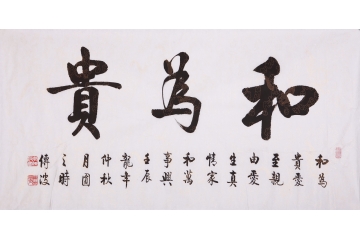 和為貴
和為
貴愛
至親
由愛
生真
情家
和萬
事興
壬辰
龍年
仲秋
月圓
之時